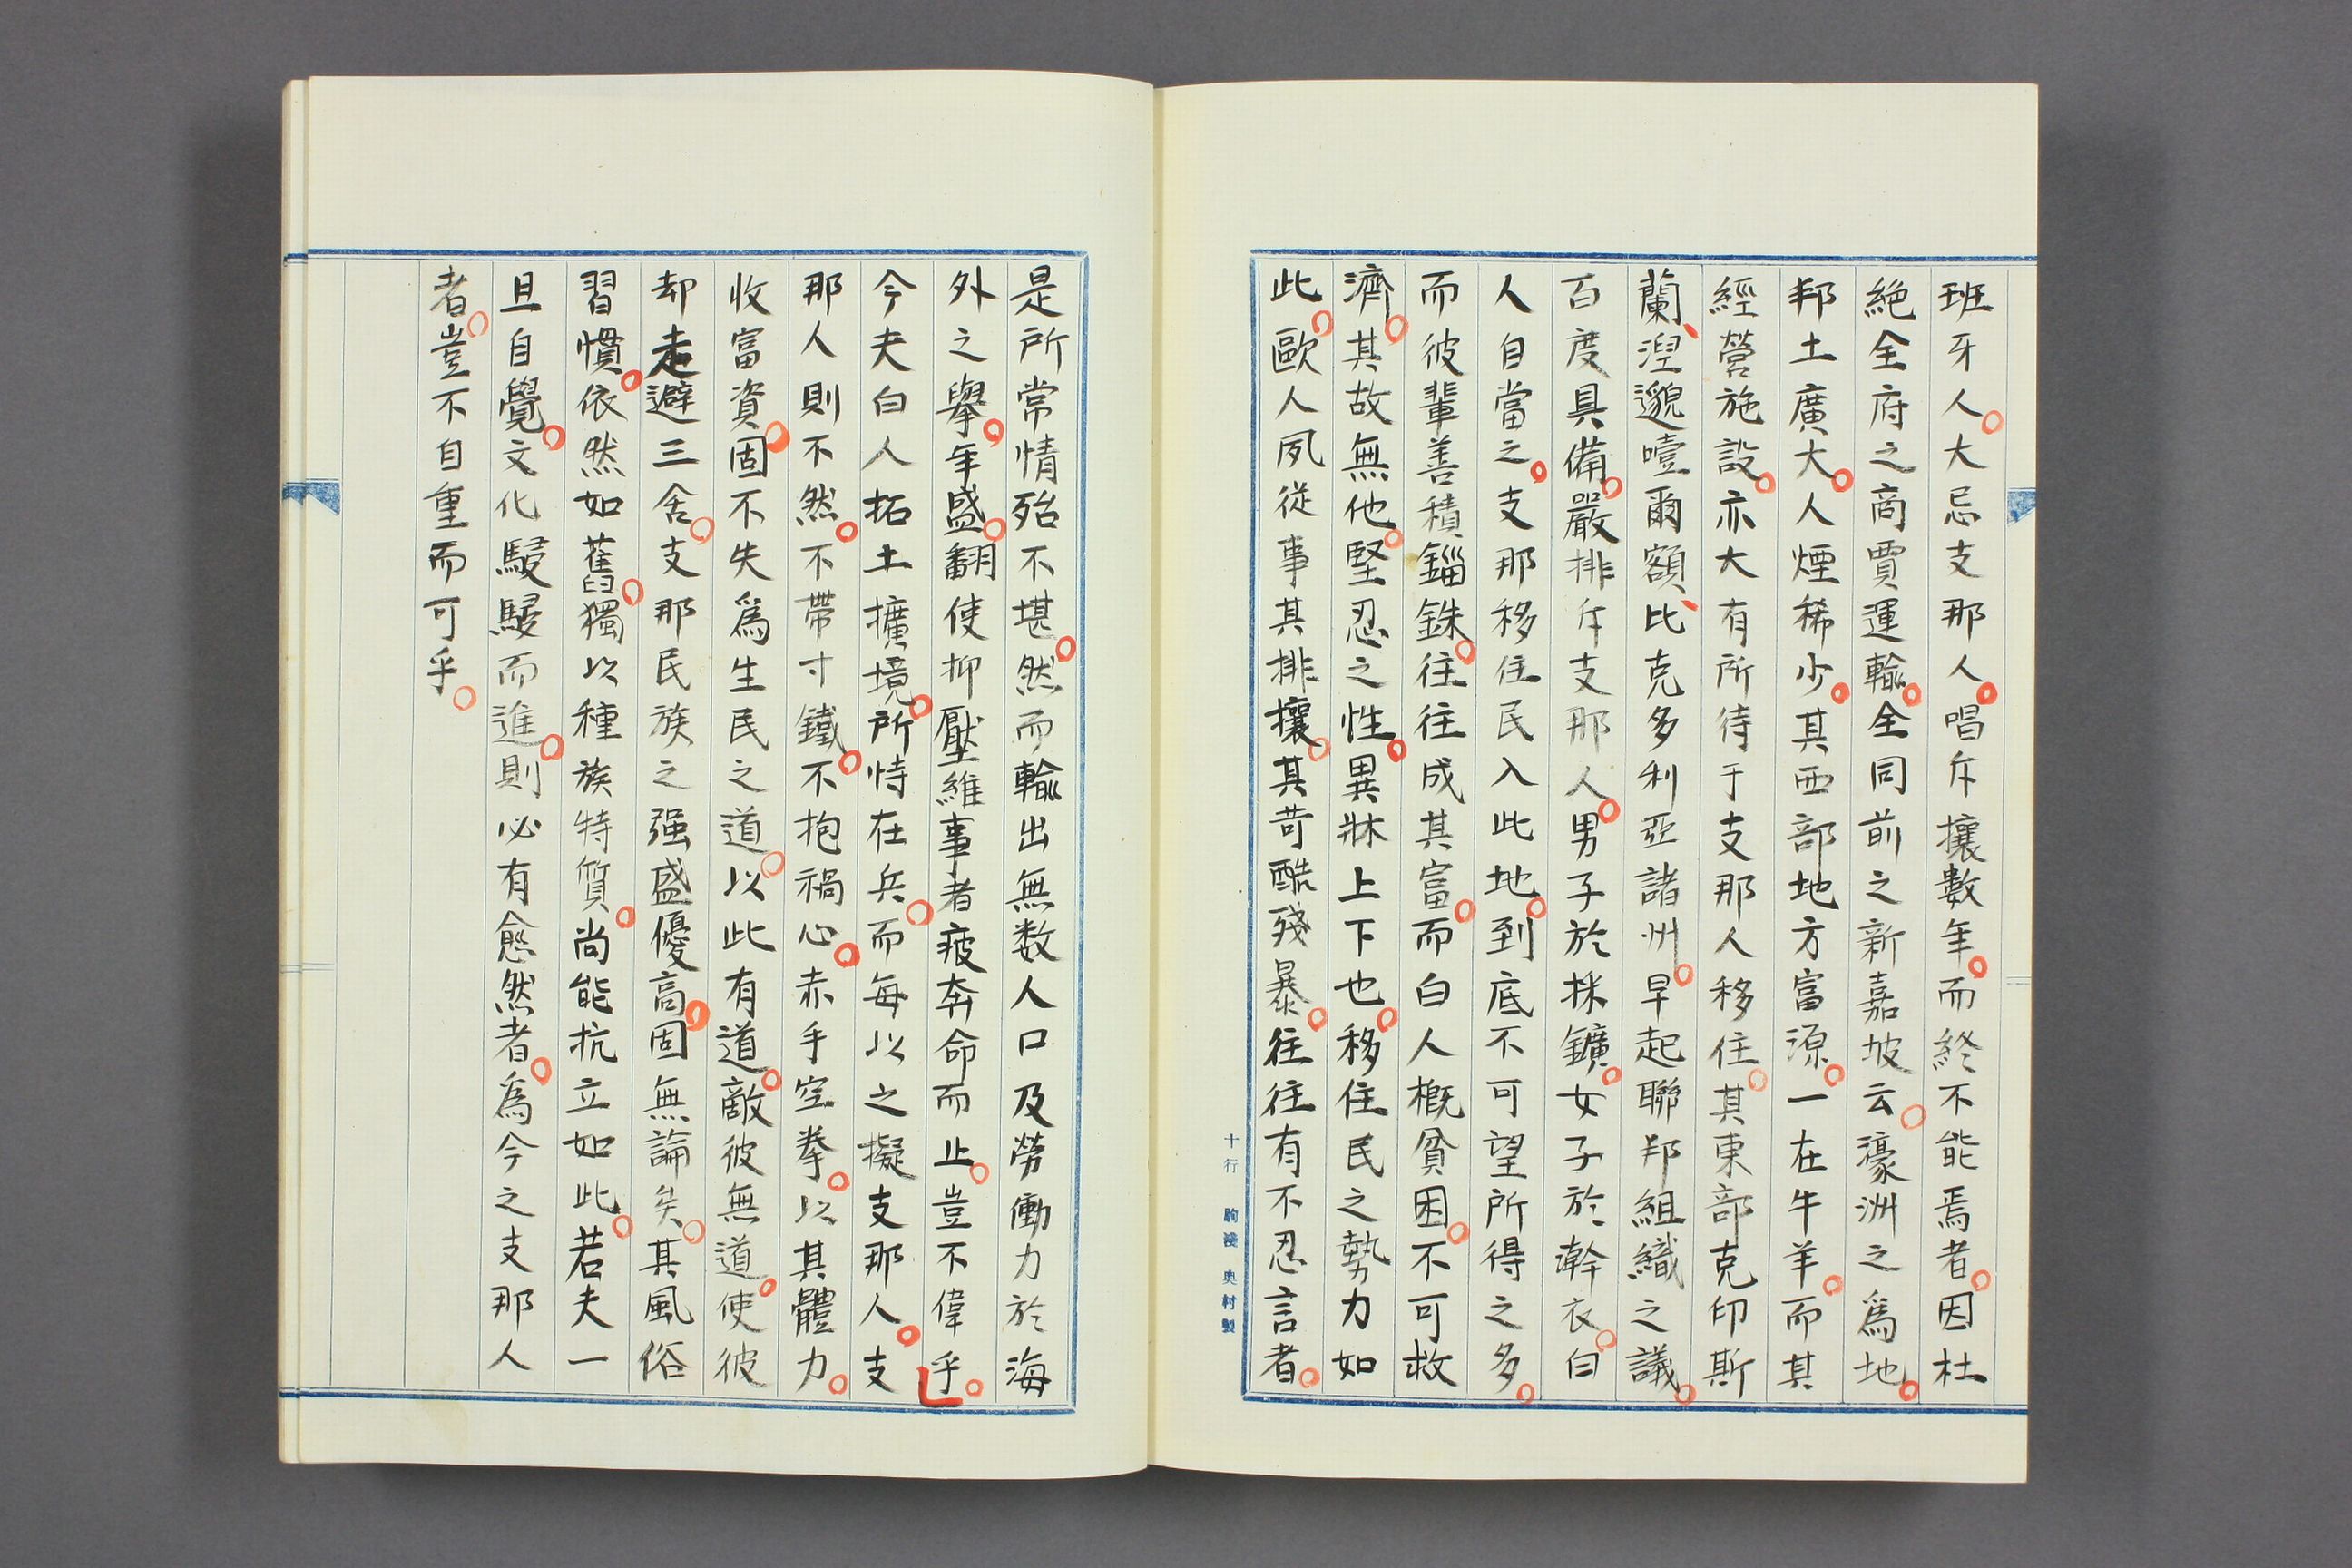 班牙人。大忌支那人。唱斥攘數年。而終不能焉者。因杜
絶全府之商賈運輸。全同前之新嘉坡云。濠洲之爲地。
邦土廣大。人煙稀少。其西部地方富源。一在牛羊。而其
經營施設。亦大有所待于支那人移住。其東部克印斯
蘭、湼邈噎爾額、比克多利亞諸州。早起聯邦組織之議。
百度具備。嚴排斥支那人。男子於採鑛。女子於澣衣。白
人自當之。支那移住民入此地。到底不可望所得之多。
而彼輩善積錙銖。往往成其富。而白人概貧困。不可救
濟。其故無他。堅忍之性。異牀上下也。移住民之勢力如
此。歐人夙從事其排攘。其苛酷殘暴。往往有不忍言者。
十行 駒邊 奥村製
是所常情殆不堪。然而輸出無数人口及勞働力於海
外之擧。年盛。翻使抑壓維事者疲奔命而止。豈不偉乎。」
今夫白人拓土擴境。所恃在兵。而每以之擬支那人。支
那人則不然。不帶寸鐵。不抱禍心。赤手空拳。以其體力。
收富資。固不失爲生民之道。以此有道。敵彼無道。使彼
却走避三舍。支那民族之强盛優高。固無論矣。其風俗
習慣。依然如舊。獨以種族特質。尚能抗立如此。若夫一
旦自覺。文化駸駸而進。則必有愈然者。爲今之支那人
者。豈不自重而可乎。